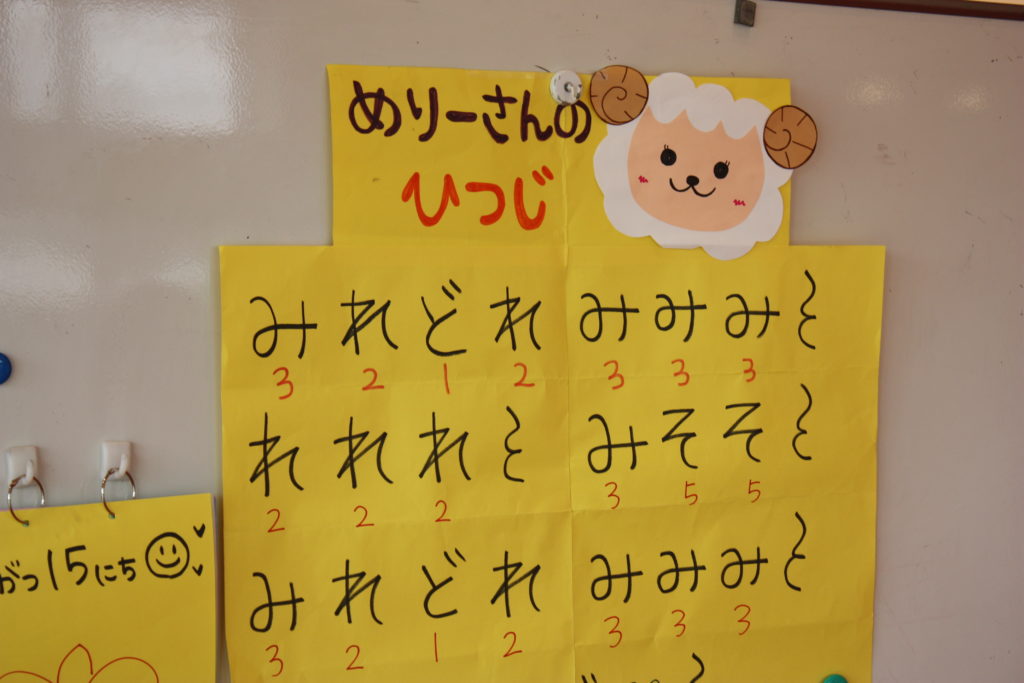 めりーさんの
ひつじ
みれどれ みみみ
3 2 1 2 3 3 3
れれれ みそそ
2 2 2 3 5 5
みれどれ みみみ
3 2 1 2 3 3 3
がつ15にち